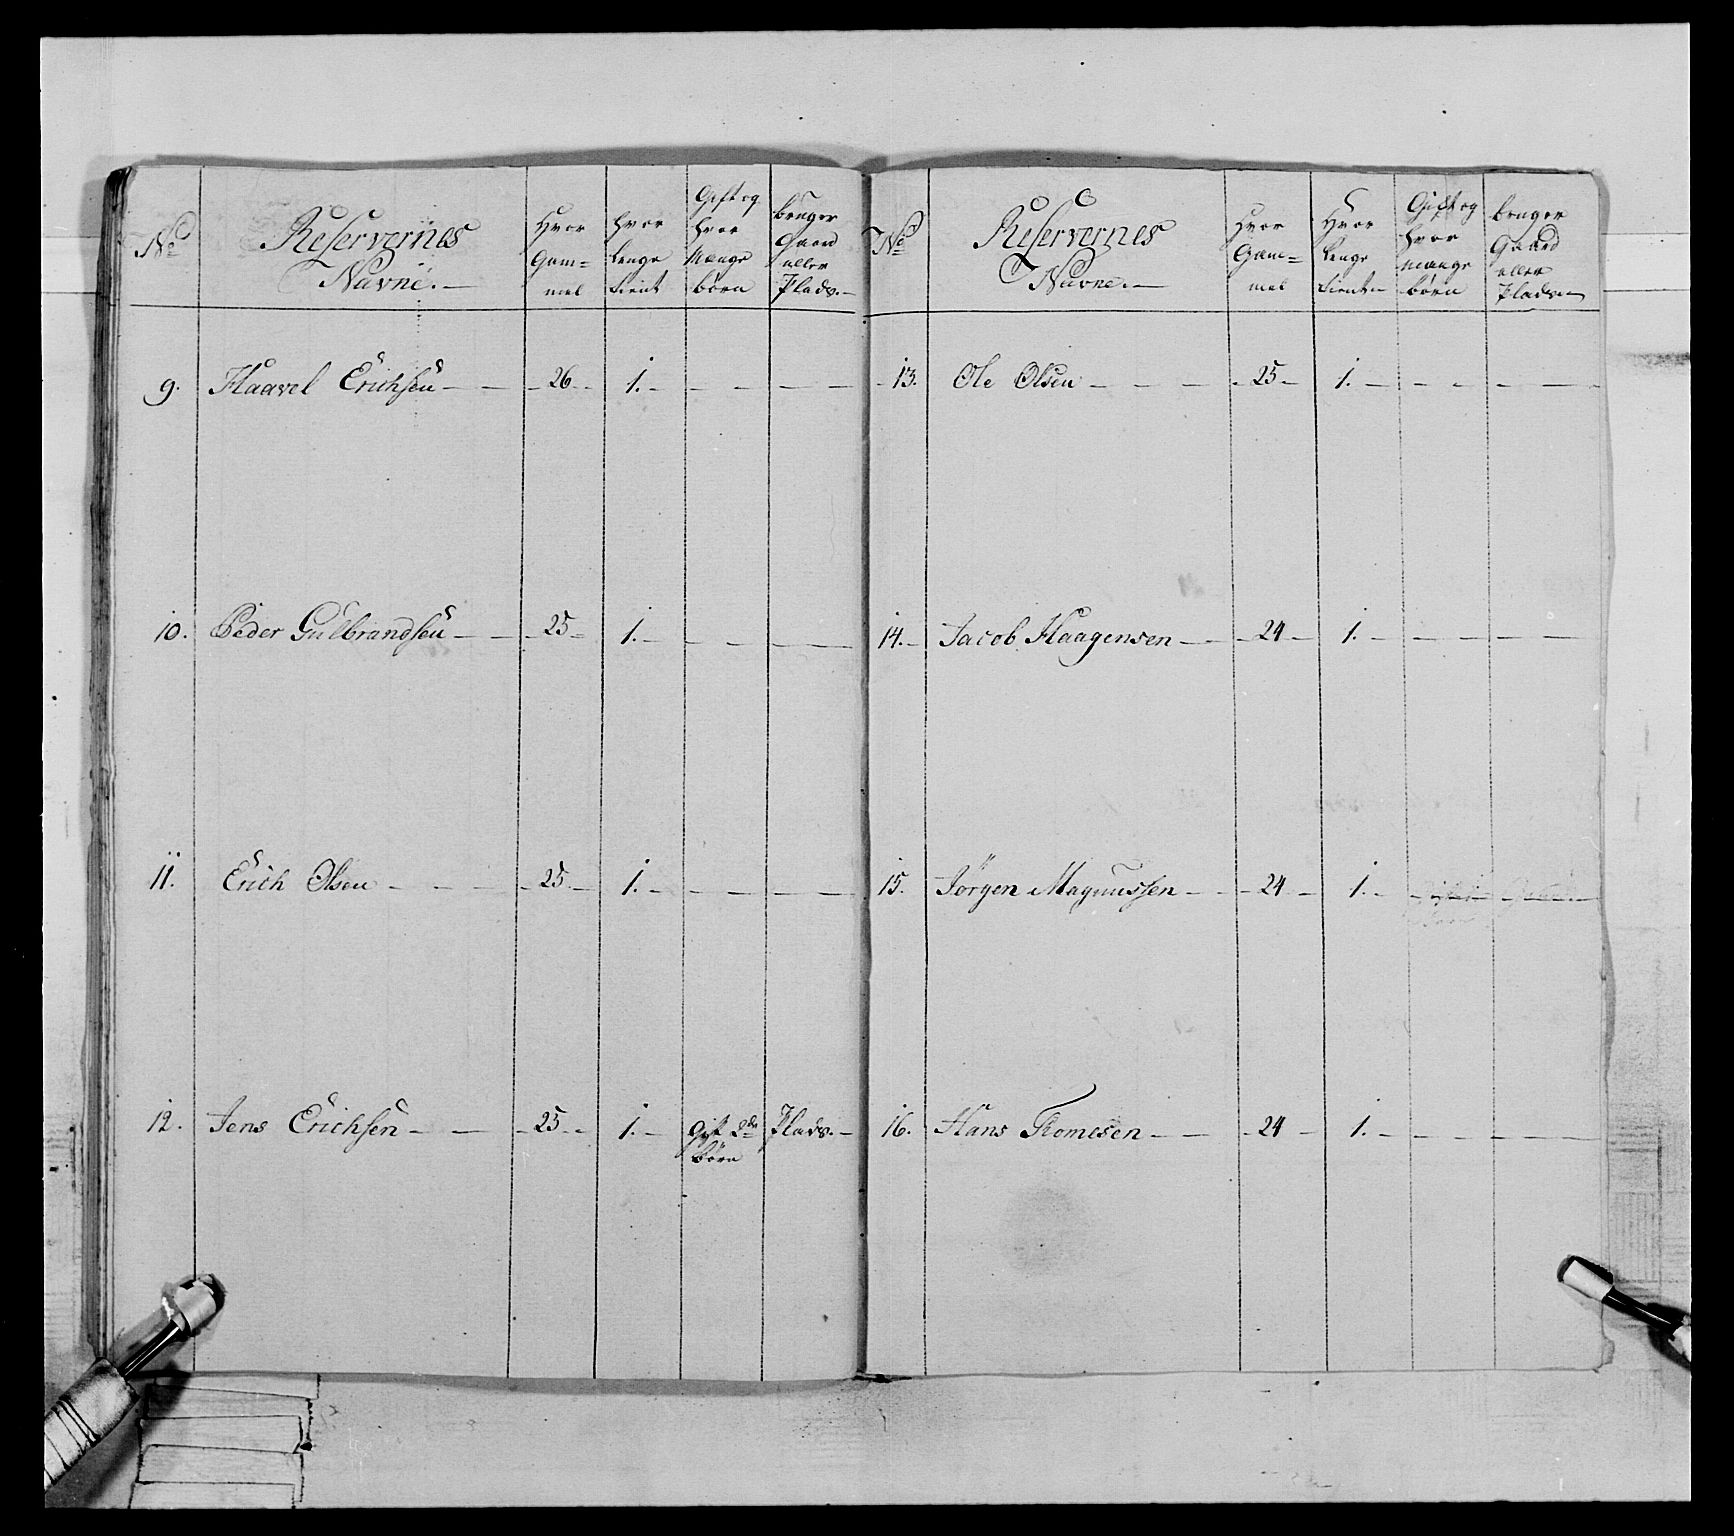 No
Reservernes
Navne.
Hvor
Gam=
mel
hvor
lenge
tient
Gift og
hvor
Mange
børn
bruger
Gaard
eller
Plads.
9. Haavel Erichsen 26 1.
10. Peder Gulbrandsen 25 1.
11. Erich Olsen 25 1.
12. Jens Erichsen 25 1. Gift 2de Plads.
børn
No
Reservernes
Navne.
Hvor
Gam=
mel
Hvor
lenge
tient
Gift og
hvor
mange
børn
bruger
Gaard
eller
Plads
13. Ole Olsen 25 1.
14. Jacob Haagensen 24 1.
15. Jörgen Magnussen 24 1.
16. Hans Thomesen 24 1.